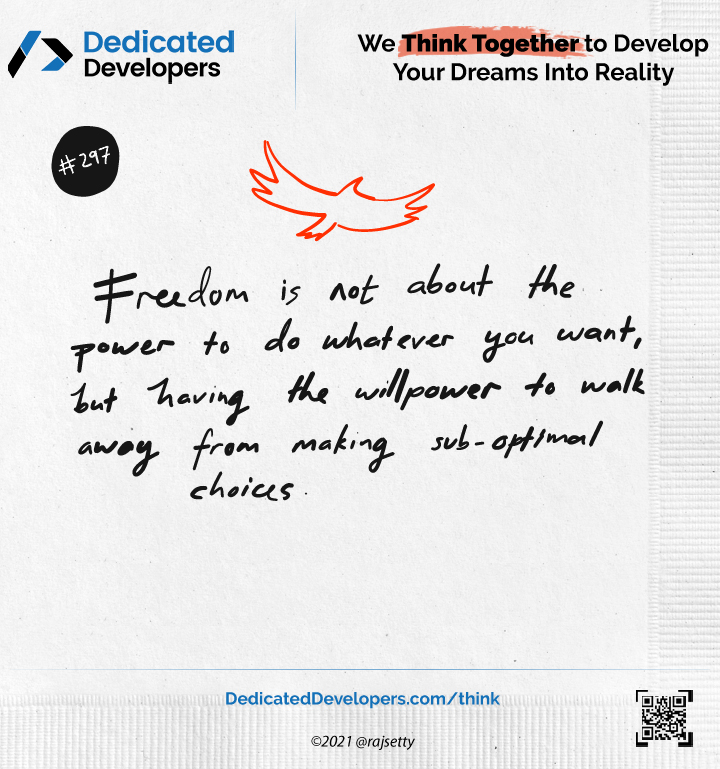 Dedicated
Developers
We Think Together to Develop
Your Dreams Into Reality
#297
Freedom is not about the
power to do whatever you want,
but having the willpower to walk
away from making sub-optimal
choices.
DedicatedDevelopers.com/think
©2021 @rajsetty